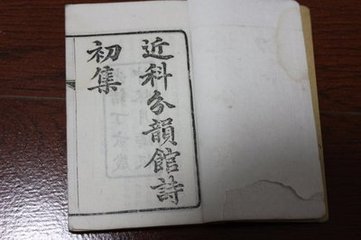 近科分韻館詩
初集